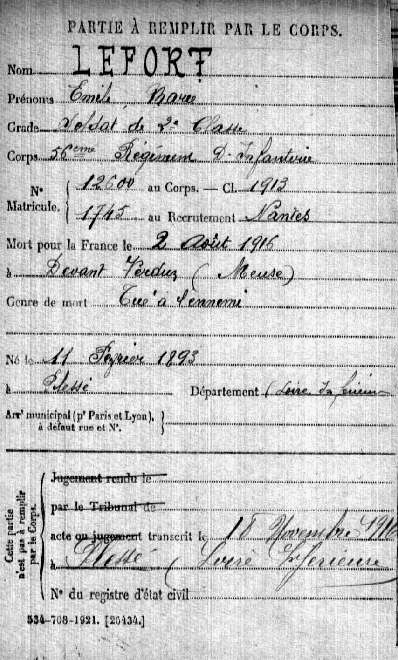 PARTIE À REMPLIR PAR LE CORPS.
Nom LEFORT
Prénoms Emile
Grade Soldat de 2e Classe
Corps 56ème Régiment D'Infanterie
N° Matricule. 12600 au Corps. — Cl. 1913
1745 au Recrutement Nantes
Mort pour la France le 2 Août 1916
à Devant Verdun (Meuse)
Genre de mort Tué à l'ennemi
Né le 11 Février 1893
à Plessé Département Loire Inférieure
Arrt municipal (pr Paris et Lyon),
à défaut rue et N°.
Cette partie n'est pas à remplir par le Corps.
Jugement rendu le
par le Tribunal de
acte ou jugement transcrit le Novembre 1916
à Plessé (Loire Inférieure
N° du registre d'état civil
534-708-1921. [26434.]